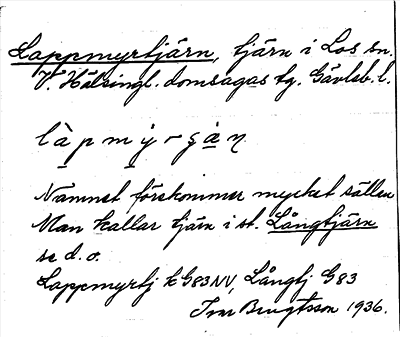 Lappmyrtjärn, tjärn i Los sn.
V. Hälsingl. domsagas tg. Gävleb. l.
làpmy̬r-ṣạ̀ṇ
Namnet förekommer mycket sällan
Man kallar tjärn i st. Långtjärn
se d. o.
Lappmyrtj k G83NV, Långtj G83
Ivar Bengtsson 1936.